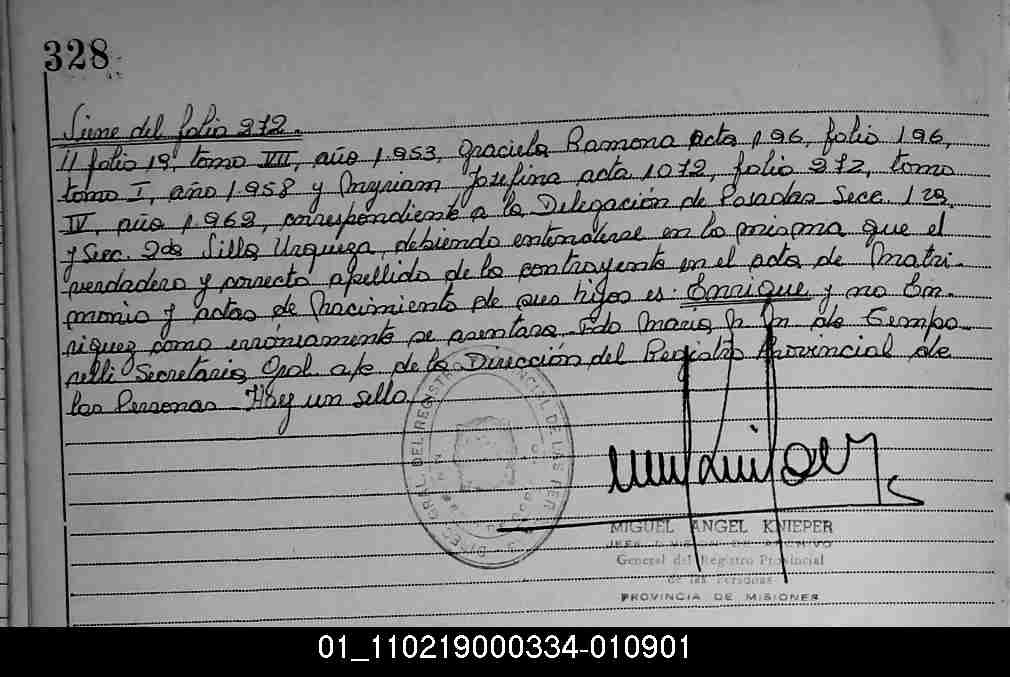 328
Viene del folio 272.
// folio 19, tomo VII, año 1.953, Graciela Ramona acta 196, folio 196,
tomo I, año 1.958 y Myriam Josefina acta 1072, folio 272, tomo
IV, año 1.962, correspondiente a la Delegación de Posadas Secc. 1ra
y Secc. 2da Villa Urquiza, debiendo entenderse en la misma que el
verdadero y correcto apellido de la contrayente en el acta de Matri-
monio y actas de Nacimiento de sus hijos es: Enrique y no En-
riquez como erróniamente se asentara. Fdo María de
Secretaria Gral. a/c de la Dirección del Registro Provincial de
las Personas - Hay un sello.
MIGUEL ANGEL KNIEPER
JEFE DIVISION DE ARCHIVO
General del Registro Provincial
de las Personas
PROVINCIA DE MISIONES
01_110219000334-010901